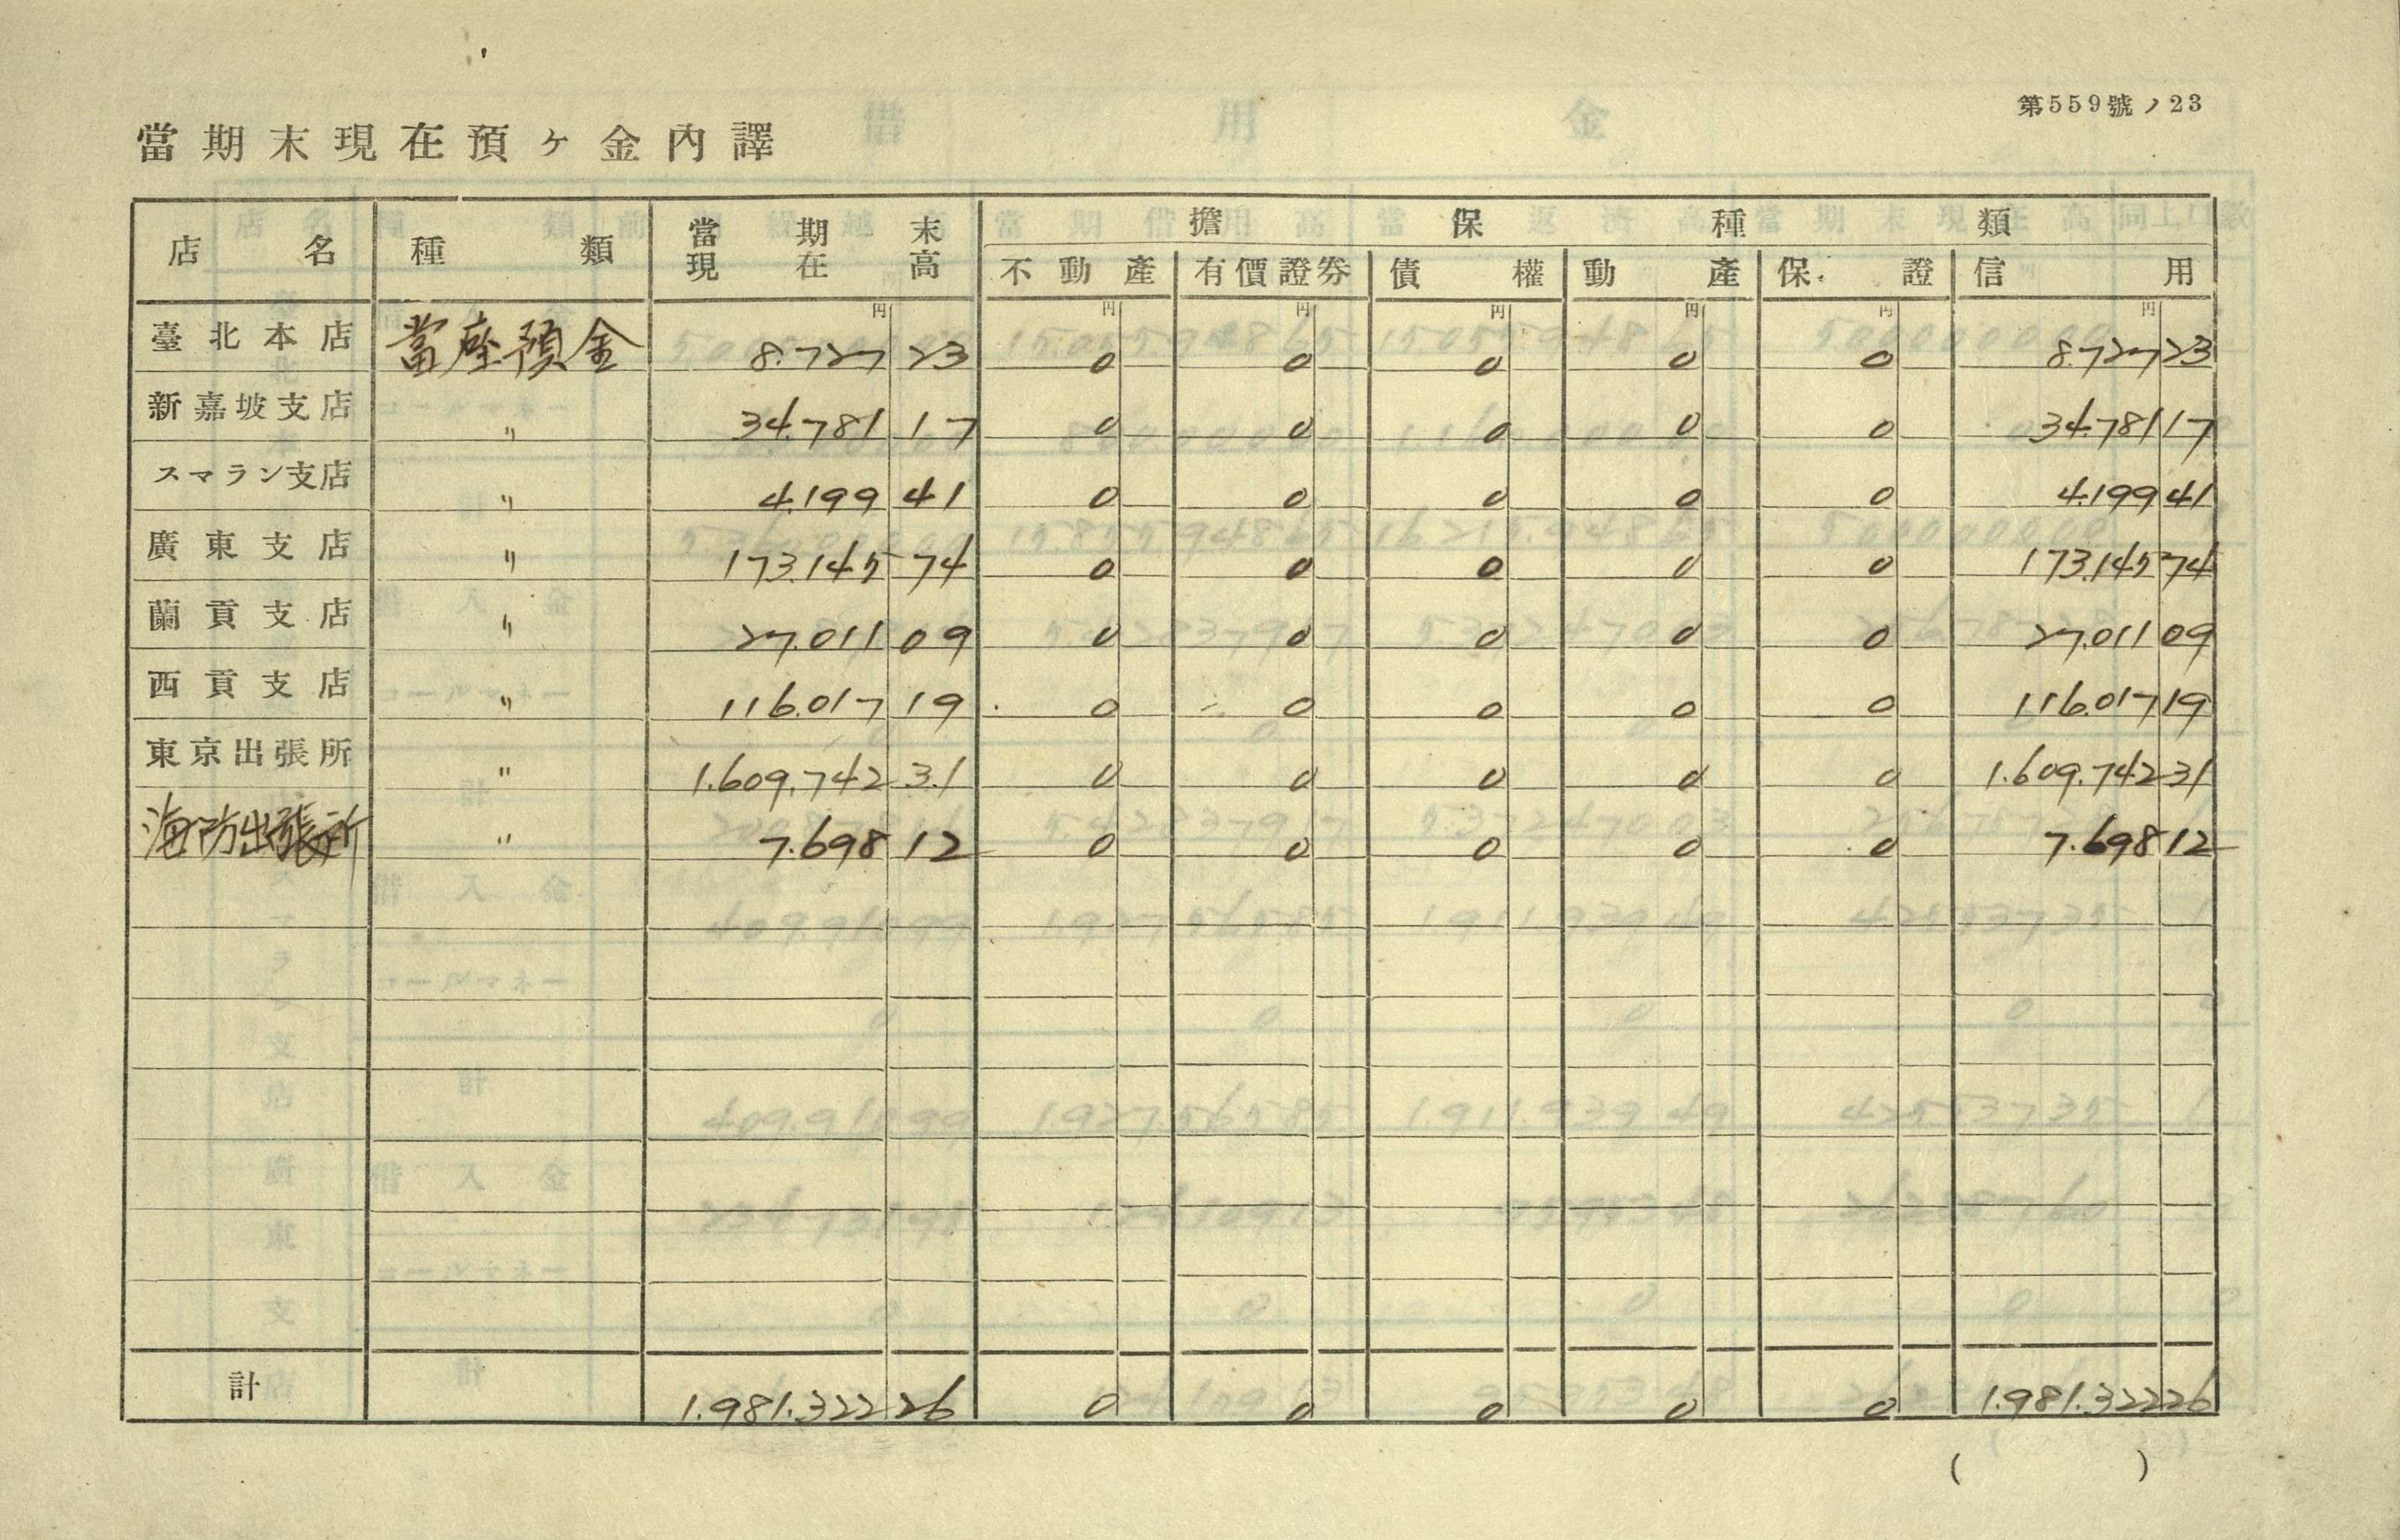 第559號ノ23
當期末現在預ケ金內譯
店名 種類 當期末現在高 擔保種類
不動產 有價證券 債權 動產 保證 信用
円 円 円 円 円 円 円
臺北本店 當座預金 8.727 23 0 0 0 0 0 8.727 23
新嘉坡支店 〃 34.781 17 0 0 0 0 0 34.781 17
スマラン支店 〃 4.199 41 0 0 0 0 0 4.199 41
廣東支店 〃 173.145 74 0 0 0 0 0 173.145 74
蘭貢支店 〃 27.011 09 0 0 0 0 0 27.011 09
西貢支店 〃 116.017 19 0 0 0 0 0 116.017 19
東京出張所 〃 1.609.742 31 0 0 0 0 0 1.609.742 31
海防出張所 〃 7.698 12 0 0 0 0 0 7.698 12
計 1.981.322 26 0 0 0 0 0 1.981.322 26
( )